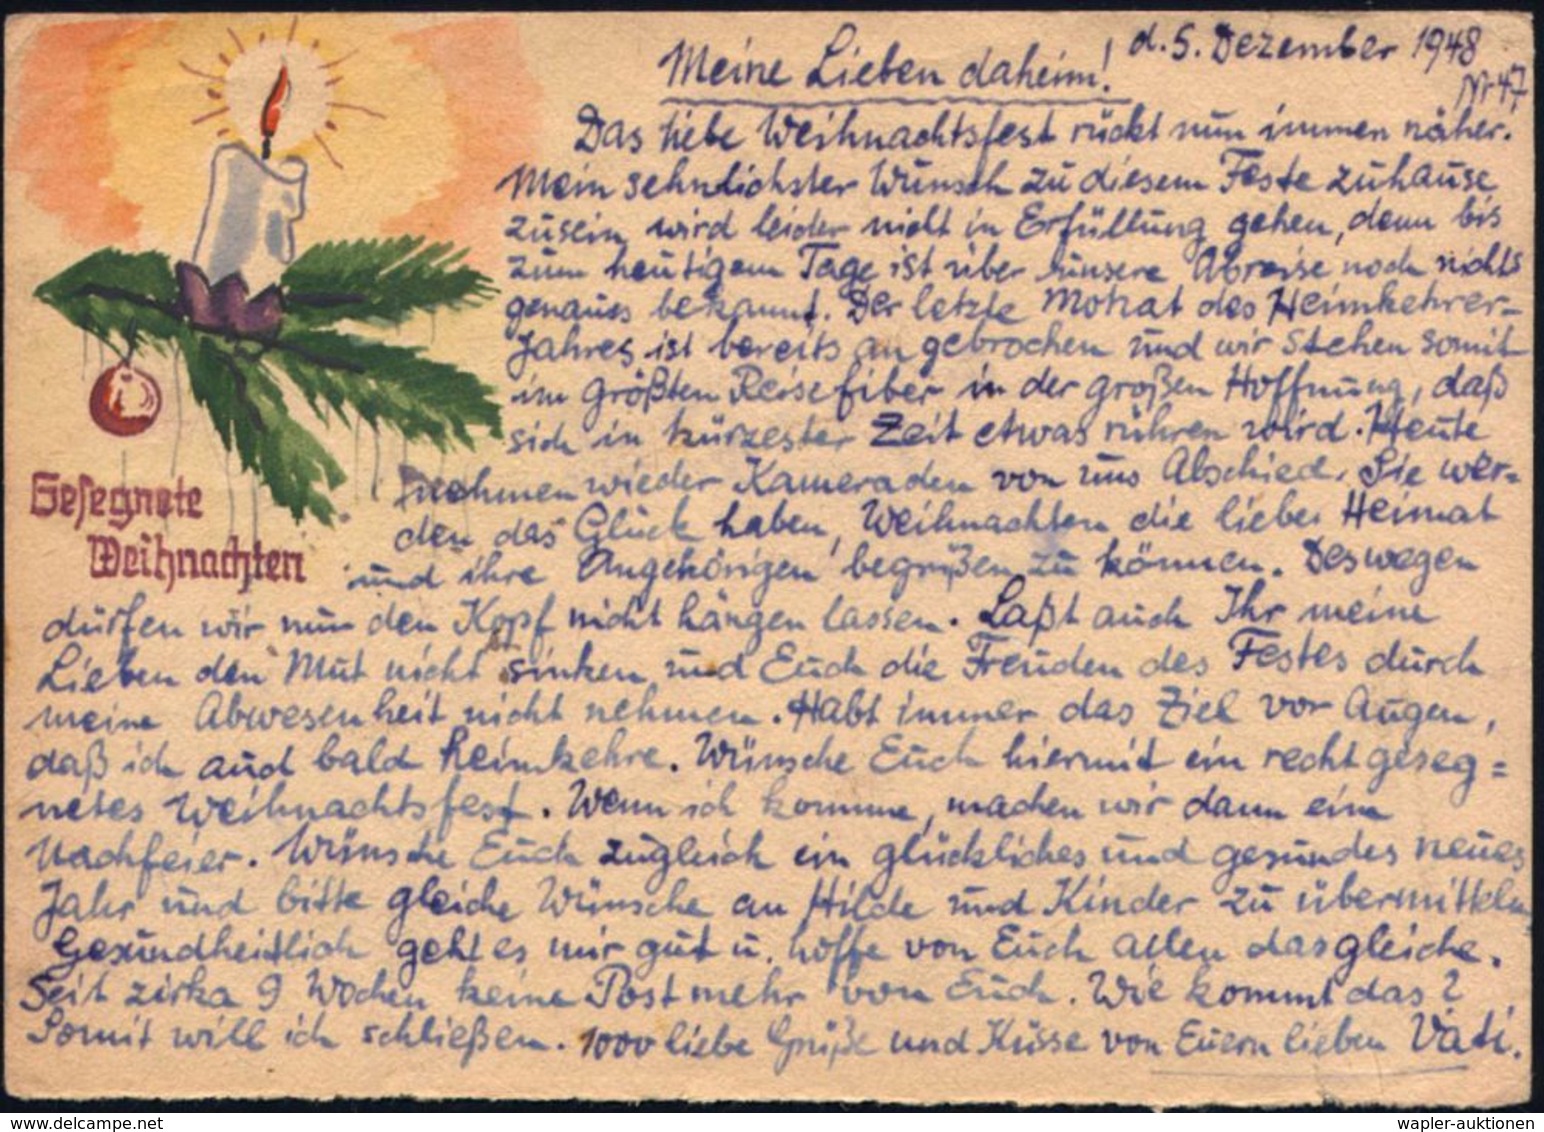 d. 5. Dezember 1948
Meine Lieben daheim!
Nr 47
Das liebe Weihnachtsfest rückt nun immer näher.
Mein sehnlichster Wunsch zu diesem Feste zuhause
zusein, wird leider nicht in Erfüllung gehen, denn bis
zum heutigem Tage ist über unsere Abreise noch nichts
genaues bekannt. Der letzte Monat des Heimkehrer-
Jahres ist bereits angebrochen und wir stehen somit
im größten Reisefiber in der großen Hoffnung, daß
sich in kürzester Zeit etwas rühren wird. Heute
nehmen wieder Kameraden von uns Abschied. Sie wer=
den das Glück haben, Weihnachten die liebe Heimat
und ihre Angehörigen begrüßen zu können. Deswegen
Gesegnete
Weihnachten
dürfen wir nun den Kopf nicht hängen lassen. Laßt auch Ihr meine
Lieben den Mut nicht sinken und Euch die Freuden des Festes durch
meine Abwesenheit nicht nehmen. Habt immer das Ziel vor Augen,
daß ich auch bald heimkehre. Wünsche Euch hiermit ein recht geseg=
netes Weihnachtsfest. Wenn ich komme, machen wir dann eine
Nachfeier. Wünsche Euch zugleich ein glückliches und gesundes neues
Jahr und bitte gleiche Wünsche an Hilde und Kinder zu übermitteln
Gesundheitlich geht es mir gut u. hoffe von Euch allen das gleiche.
Seit zirka 9 Wochen keine Post mehr von Euch. Wie kommt das?
Somit will ich schließen. 1000 liebe Grüße und Küsse von Euern lieben Vati.
wapler-auktionen